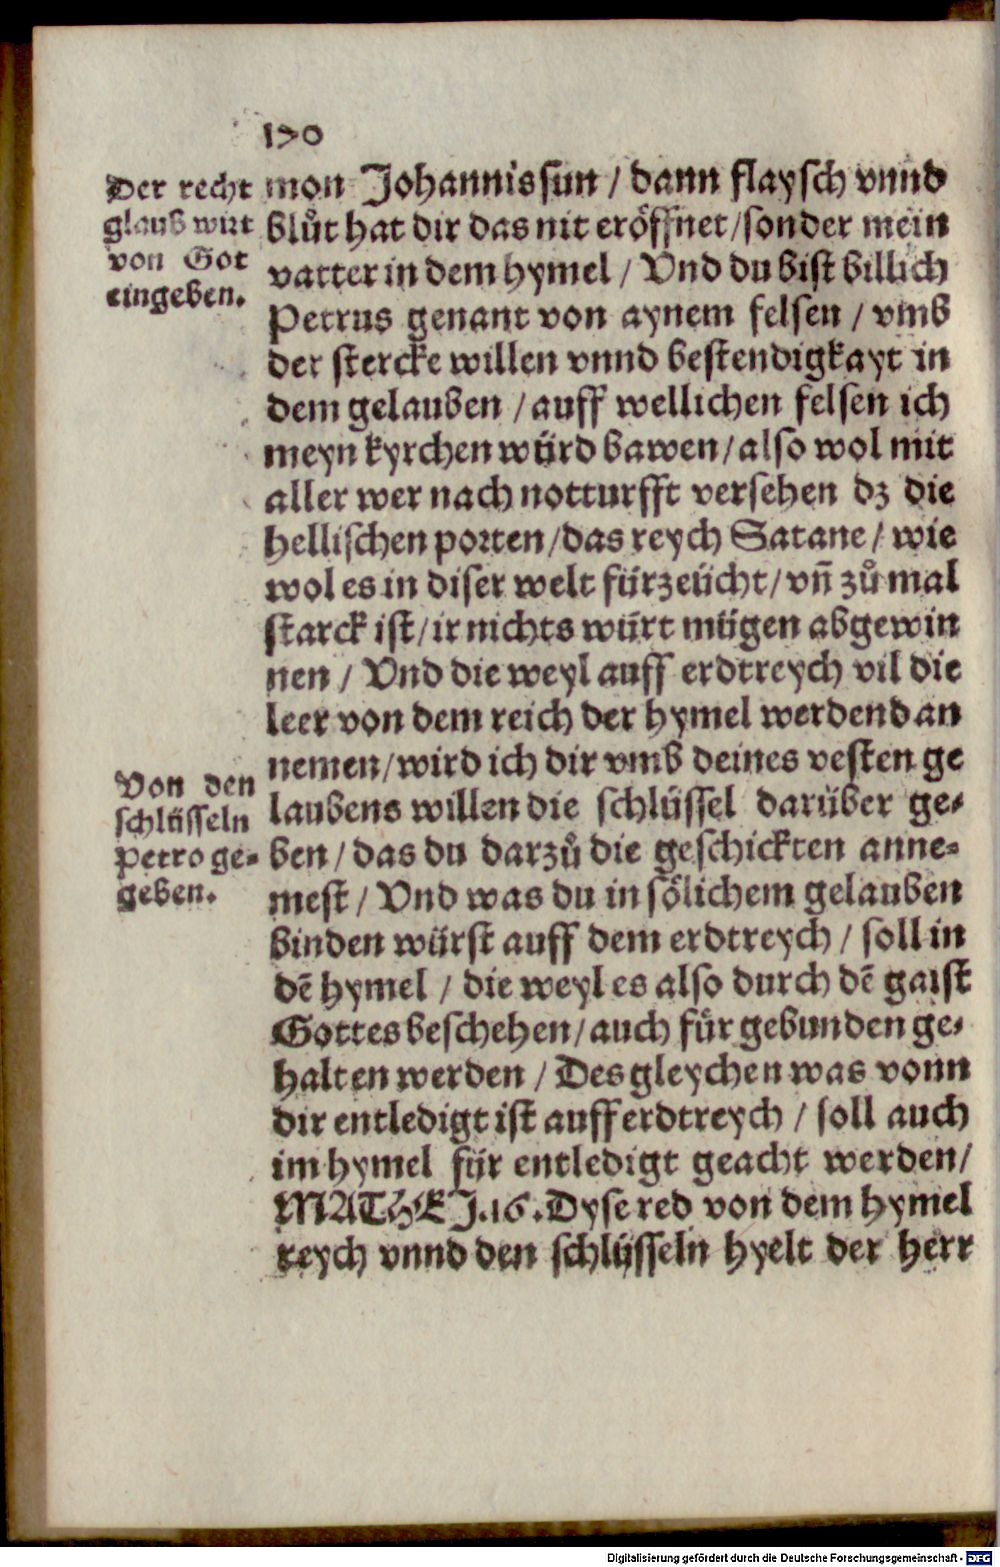 170
Der recht
glaub wirt
von Got
eingeben.
mon Johannis sun / dann flaysch vnnd
blůt hat dir das nit eröffnet / sonder mein
vatter in dem hymel / Vnd du bist billich
Petrus genant von aynem felsen / vmb
der stercke willen vnnd bestendigkayt in
dem gelauben / auff wellichen felsen ich
meyn kyrchen würd bawen / also wol mit
aller wer nach notturfft versehen dz die
hellischen porten / das reych Satane / wie
wol es in diser welt fürzeücht / vn̄ zů mal
starck ist / ir nichts würt mügen abgewin
nen / Vnd die weyl auff erdtreych vil die
leer von dem reich der hymel werdend an
nemen / wird ich dir vmb deines vesten ge
Von den
schlüsseln
Petro ge-
geben.
laubens willen die schlüssel darüber ge-
ben / das du darzů die geschickten anne-
mest / Vnd was du in sölichem gelauben
binden würst auff dem erdtreych / soll in
dē hymel / die weyl es also durch dē gaist
Gottes beschehen / auch für gebunden ge-
halten werden / Des gleychen was vonn
dir entledigt ist auff erdtreych / soll auch
im hymel für entledigt geacht werden /
MATHEI.16. Dyse red von dem hymel
reych vnnd den schlüsseln hyelt der herr
Digitalisierung gefördert durch die Deutsche Forschungsgemeinschaft - DFG